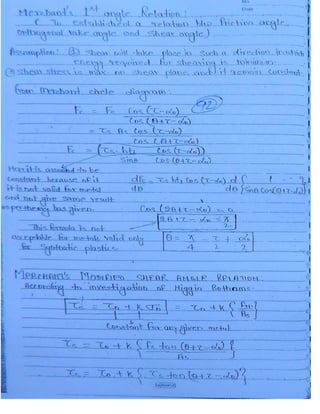 Merchant's 1st angle Relation:
( To established a relation b/w friction angle,
orthogonal rake angle and shear angle)
Assumption: (1) Shear will take place in such a direction in which
energy required for shearing is minimum.
(2) Shear stress is max. on shear plane and it remain constant.
from Merchant circle diagram:
Fc = Fs Cos (τ-αo)
Cos (θ+τ-αo)
= τs As Cos (τ-αo)
Cos (θ+τ-αo)
Fc = (τs. bt1 Cos (τ-αo))
Sinθ Cos (θ+τ-αo)
Here it is assumed to be
constant because of it
it is not valid for metal
and not give same result
as per theory has given.
dFc = τs bt1 Cos (τ-αo) . d { 1 }
dθ dθ { Sinθ Cos(θ+τ-αo) }
Cos (2θ+τ-αo) = 0
2θ+τ-αo = π/2
This formula is not
acceptable for metals valid only
for synthetic plastics
θ = π/4 - τ/2 + αo/2
MERCHANT'S MODIFIED SHEAR ANGLE RELATION:
According to investigation of
τs = τo + k σn = τo + k { Fn }
As
Constant for any given metal
τs = τo + k { Fs tan (θ+τ-αo) }
As
τs = τo + k { τs tan (θ+τ-αo) }